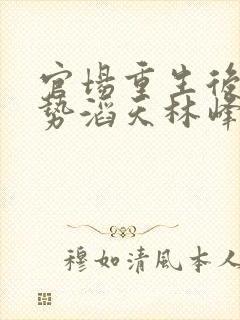 官場重生後
勢滔天林峰
穆如清風本人